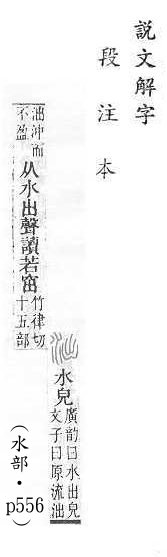 說文解字
段注本
泏
水皃
廣韵曰水出皃
文子曰原流泏
泏沖而
不盈
从水出聲讀若窋
竹律切
十五部
(水部・p556)